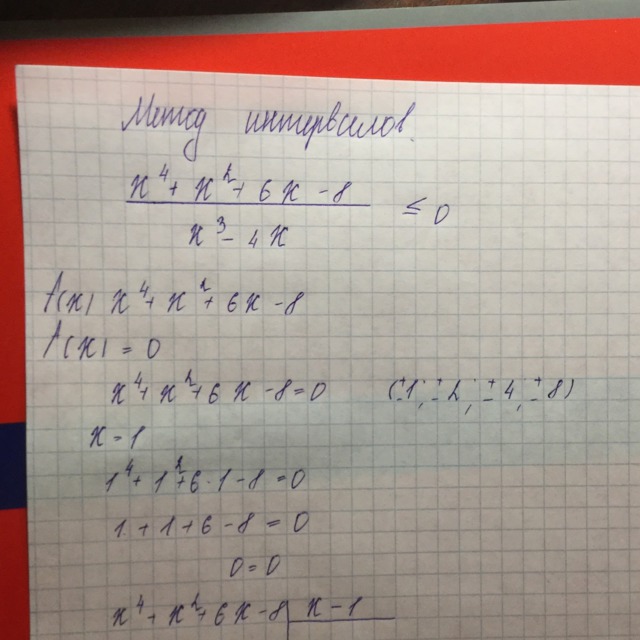 Метод интервалов.
x⁴ + x² + 6x - 8
x³ - 4x
≤ 0
f(x) x⁴ + x² + 6x - 8
f(x) = 0
x⁴ + x² + 6x - 8 = 0 (±1, ±2, ±4, ±8)
x = 1
1⁴ + 1² + 6·1 - 8 = 0
1 + 1 + 6 - 8 = 0
0 = 0
x⁴ + x² + 6x - 8 | x - 1